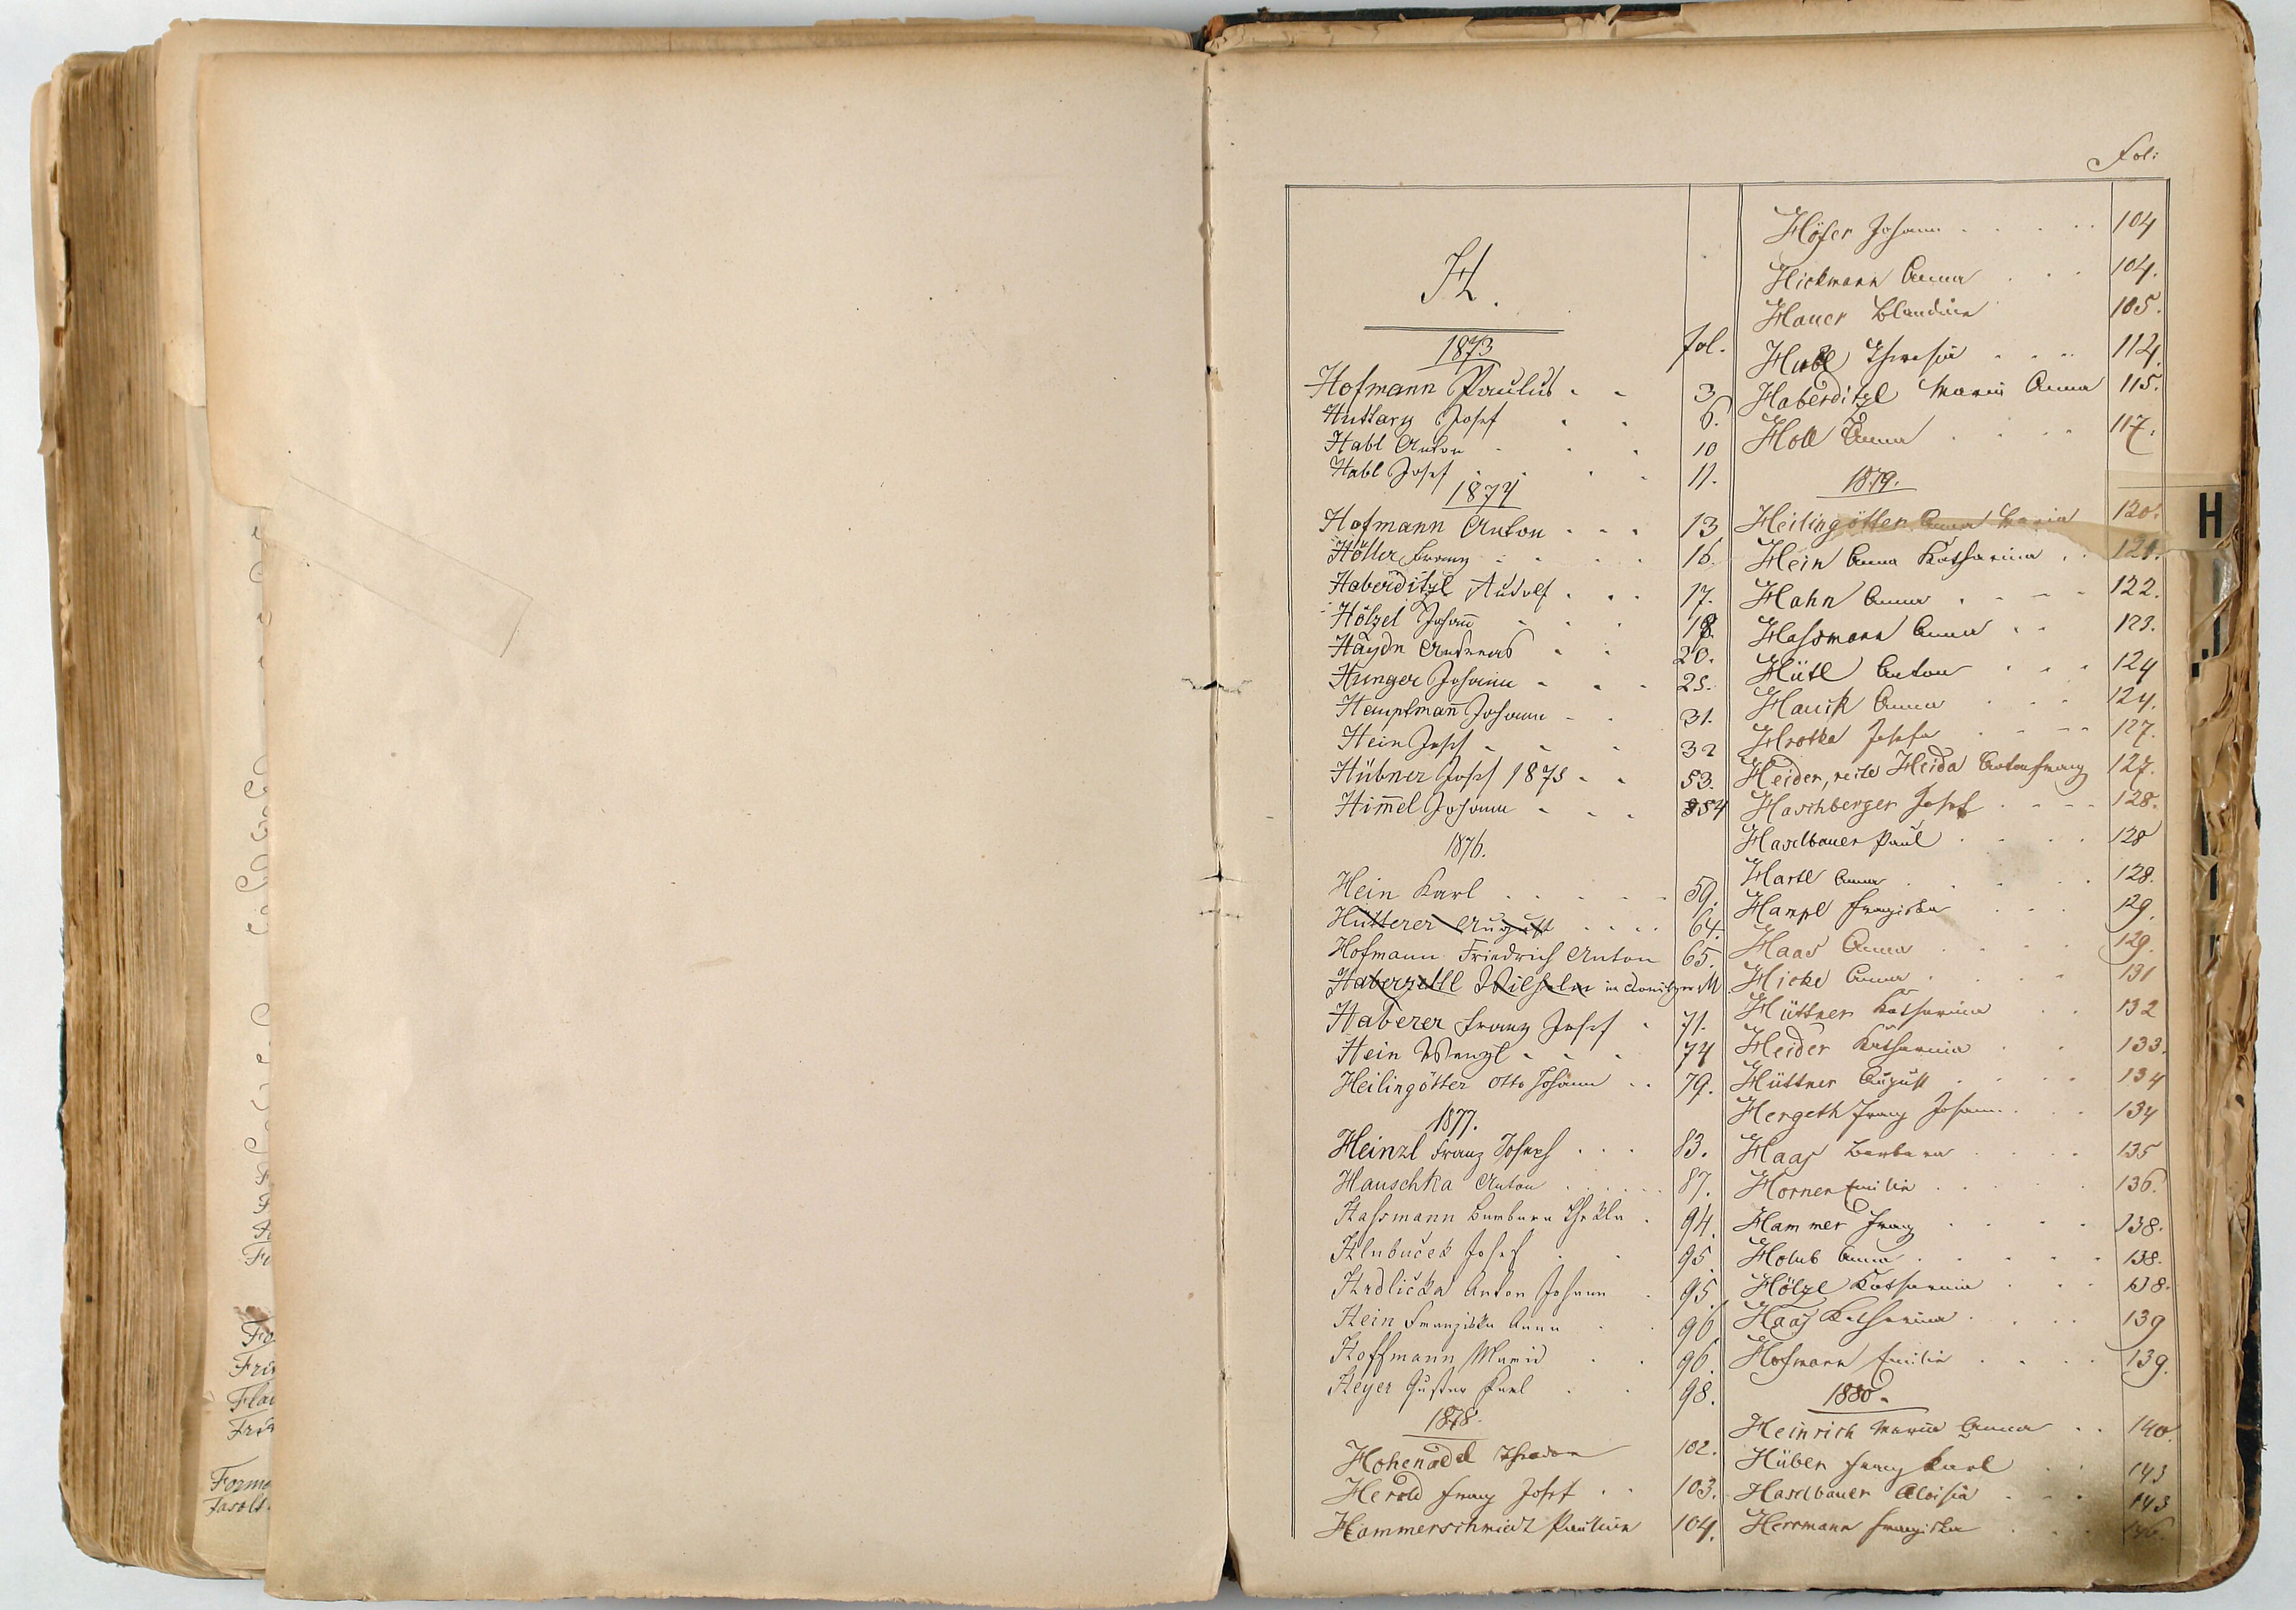 Fol:
H.
1873
fol.
Hofmann Paulus 3
Huttary Josef 6.
Habl Anton 10
Habl Josef 11.
1874
Hofmann Anton 13
Höller Franz 16.
Haberditzl Rudolf 17.
Hölzel Johann̄ 18
Haydn Andreas 20.
Hunger Johann 25.
Hauptman̄ Johann 31.
Hein Josef 32
Hübner Josef 1875 53.
Him̄el Johann 54
1876.
Hein Karl 59.
Hütterer August 64.
Hofmann Friedrich Anton 65.
Haberzettl Wilhelm in M
Haberer Franz Josef 71.
Hein Wenzl 74
Heilingötter Otto Johann 79.
1877.
Heinzl Franz Joseph 83.
Hauschka Anton 87.
Hafsmann Barbara Thekla 94.
Hlubuček Josef 95.
Hrdlička Anton Johann 95.
Hein Franziska Anna 96
Hoffmann Maria 96.
Heyer Gustav Karl 98.
1878.
Hohenadel Theodor 102.
Herold Franz Josef 103.
Hammerschmidt Pauline 104.
Höfer Johann 104
Hickmann Anna 104.
Hauer Blandine 105.
Habl Theresia 112.
Haberditzl Maria Anna 115.
Holl Anna 117.
1879.
Heilingötter Anna Maria 120.
Hein Anna Katharina 121.
Hahn Anna 122.
Hafsmann Anna 123.
Hütl Anton 124
Hauck Anna 124.
Hrotka Josefa 127.
Heider, recte Heida Anton Franz 127.
Haschberger Josef 128.
Haselbauer Paul 128
Hartl Anna 128.
Hampl Franziska 129.
Haas Anna 129.
Hicke Anna 131
Hüttner Katharina 132
Heider Katharina 133.
Hüttner August 134
Hergeth Franz Johann 134
Haas Barbara 135
Horner Emilie 136.
Hammer Franz 138.
Holub Anna 138.
Hölzl Katharina 138.
Haas Katharina 139
Hofmann Emilie 139.
1880.
Heinrich Maria Anna 140.
Hüber Franz Karl 143
Haselbauer Aloisia 143
Herrmann Franziska 146.
H
J